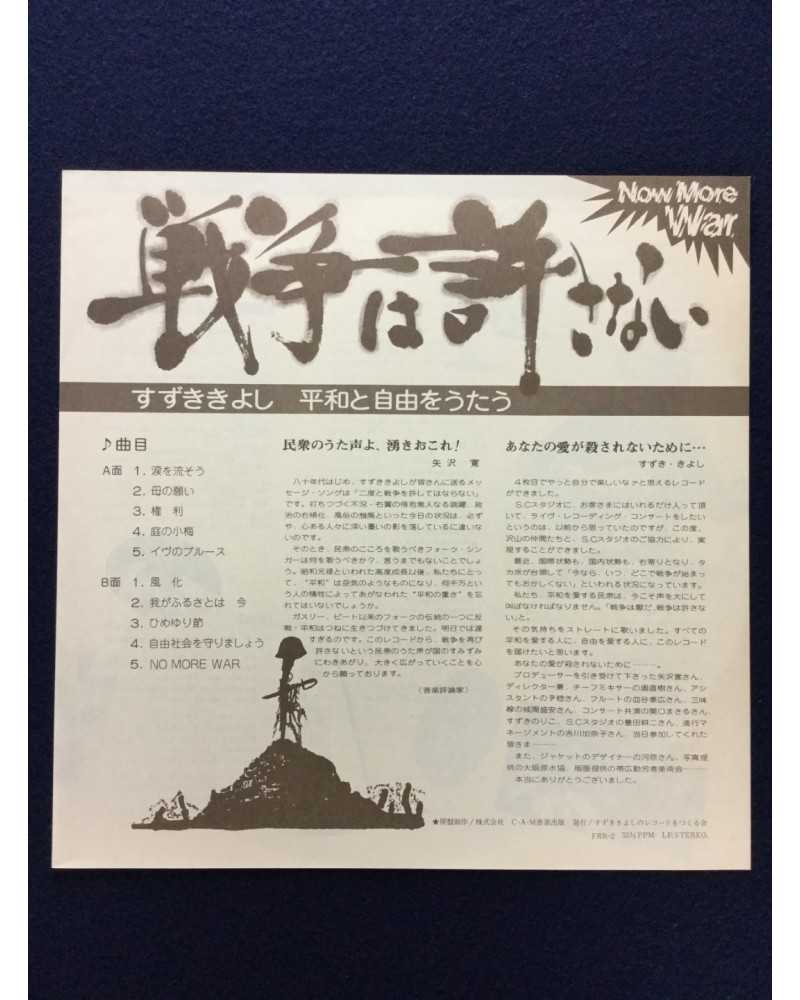 Now More
War
戦争は許さない
すずききよし 平和と自由をうたう
♪曲目
A面 1. 涙を流そう
2. 母の願い
3. 権 利
4. 庭の小梅
5. イヴのブルース
B面 1. 風 化
2. 我がふるさとは 今
3. ひめゆり節
4. 自由社会を守りましょう
5. NO MORE WAR
民衆のうた声よ、湧きおこれ!
矢沢 寛
八十年代はじめ、すずききよしが皆さんに送るメッ
セージ・ソングは「二度と戦争を許してはならない」
です。打ちつづく不況・右翼の傍若無人なる跳躍、政
治の右傾化、風俗の頽廃といった今日の状況は、必ず
や、心ある人々に深い憂いの影を落しているに違いな
いのです。
そのとき、民衆のこころを歌うべきフォーク・シン
ガーは何を歌うべきか? 言うまでもないことでしょ
う。昭和元禄といわれた高度成長以後、私たちにとっ
て、“平和”は空気のようなものになり、何千万とい
う人の犠牲によってあがなわれた“平和の重さ”を忘
れてはいないでしょうか。
ガスリー、ピート以来のフォークの伝統の一つに反
戦・平和はつねに生きつづけてきました。明日では遅
すぎるのです。このレコードから、戦争を再び
許さないという民衆のうた声が国のすみずみ
にわきあがり、大きく広がっていくことを心
から願っております。
(音楽評論家)
あなたの愛が殺されないために…
すずき・きよし
4枚目でやっと自分で楽しいなァと思えるレコード
ができました。
S.Cスタジオに、お客さまにはいれるだけ入って頂
いて、ライヴ・レコーディング・コンサートをしたい
というのは、以前から思っていたのですが、この度、
沢山の仲間たちと、S.Cスタジオのご協力により、実
現することができました。
最近、国際状勢も、国内状勢も、右寄りとなり、タ
カ派が台頭して「今なら、いつ、どこで戦争が始まっ
てもおかしくない」といわれる状況になっています。
私たち、平和を愛する民衆は、今こそ声を大にして
叫ばなければなりません。「戦争は厭だ、戦争は許さな
い」と。
その気持ちをストレートに歌いました。すべての
平和を愛する人に、自由を愛する人に、このレコード
を届けたいと思います。
あなたの愛が殺されないために———。
プロデューサーを引き受けて下さった矢沢寛さん、
ディレクター兼、チーフミキサーの直樹さん、アシ
スタントの予稔さん、フルートの皿谷泰広さん、三味
線の盛安さん、コンサート共演の関口まさるさん、
すずきのりこ、S.Cスタジオの豊田耕二さん、進行マ
ネージメントの吉川加奈子さん、当日参加してくれた
皆さま———
また、ジャケットのデザイナーの河原さん、写真提
供の大阪原水協、版画提供の帯広勤労者美術会———
本当にありがとうございました。
★原盤制作/株式会社 C・A・M音楽出版 発行/すずききよしのレコードをつくる会
FRR-2 33⅓ PPM LP.STEREO.